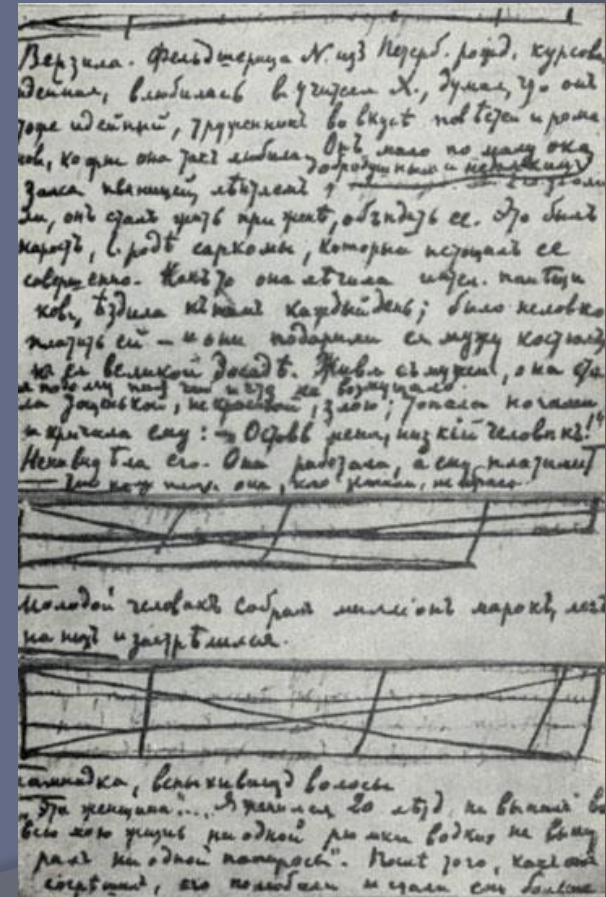 Верзила. Фельдшерица N. изъ Петерб. рожд. курсовъ,
идейная, влюбилась въ учителя X., думая, что онъ
тоже идейный, труженикъ во вкусѣ повѣстей и рома
новъ, которые она такъ любила. Онъ мало по малу ока
зался пьяницей, лѣнтяемъ, добродушнымъ и недалекимъ
онъ сталъ жить при женѣ, объѣдать ее. Это былъ
наростъ, въ родѣ саркомы, который истощалъ ее
совершенно. Какъ-то она лѣчила интел. помѣщи
ковъ, ѣздила къ нимъ каждый день; было неловко
платить ей — и они подарили ея мужу костюмъ,
къ ея великой досадѣ. Живя съ мужемъ, она ста
и это ее возмущало.
ла тощенькой, некрасивой, злою; топала ногами
и кричала ему: — Оставь меня, низкій человѣкъ!"
Ненавидѣла его. Она работала, а ему платили
она,
Молодой человѣкъ собралъ милліонъ марокъ, легъ
на нихъ и застрѣлился.
лампадка, волосы
"Эта женщина"... Я женился 20 лѣтъ, не выпилъ во
всю мою жизнь ни одной рюмки водки, не выку
рилъ ни одной папиросы". Послѣ того, какъ онъ
согрѣшилъ, его полюбили и стали ему больше